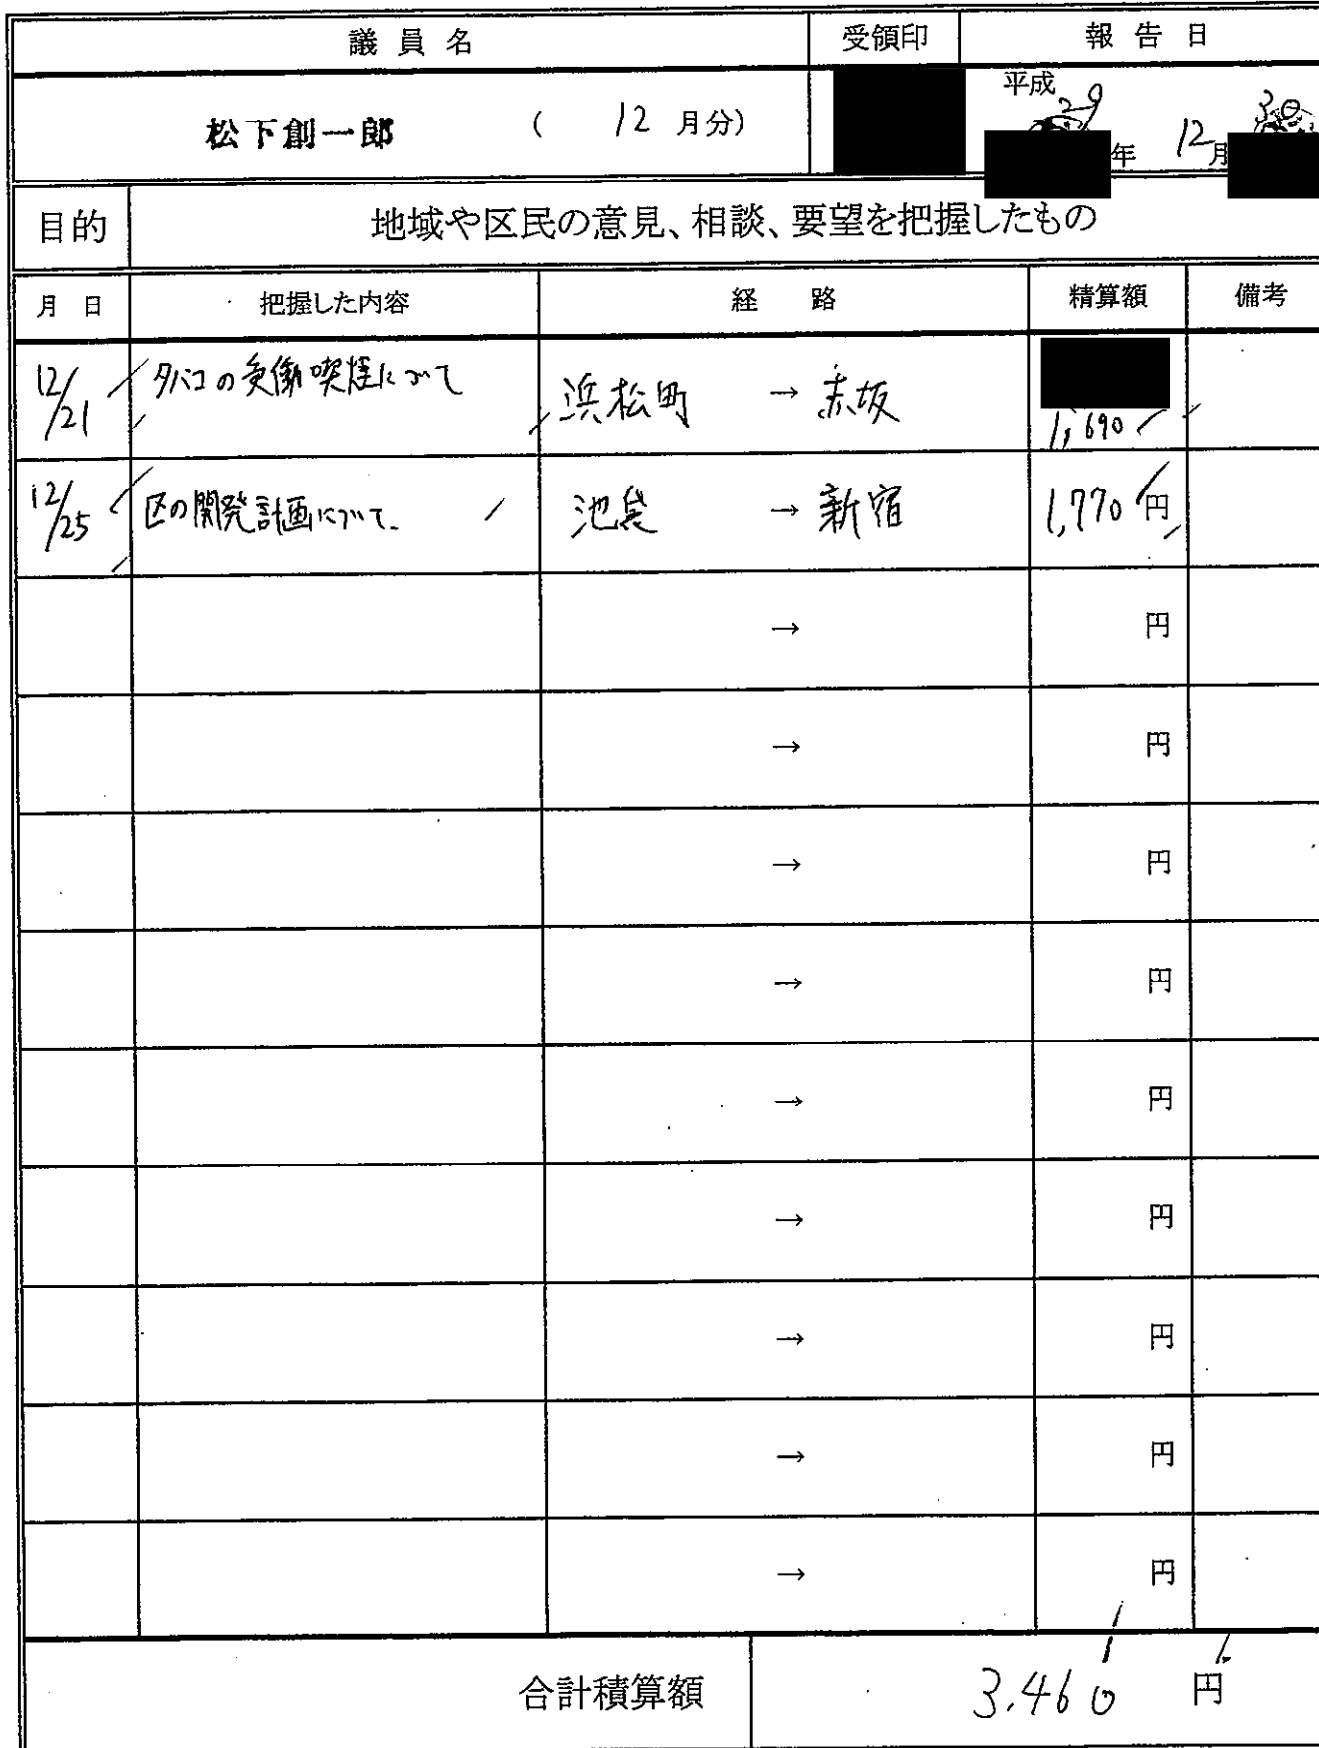 議員名 受領印 報告日
松下創一郎 ( 12 月分) 平成 29 年 12 月 30
目的 地域や区民の意見、相談、要望を把握したもの
月日 把握した内容 経路 精算額 備考
12/21 タバコの受働喫煙について 浜松町 → 赤坂 1,690
12/25 区の開発計画について 池袋 → 新宿 1,770 円
→ 円
→ 円
→ 円
→ 円
→ 円
→ 円
→ 円
→ 円
→ 円
合計積算額 3.460 円